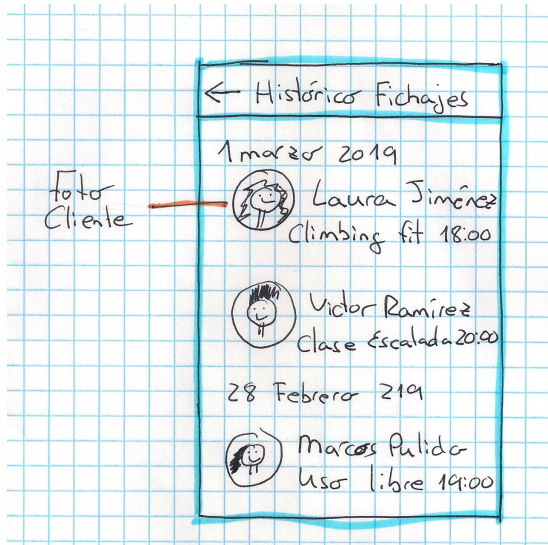 ← Histórico Fichajes
1 marzo 2019
Foto
Cliente
Laura Jiménez
Climbing fit 18:00
Victor Ramírez
Clase Escalada 20:00
28 Febrero 219
Marcos Pulido
Uso libre 19:00